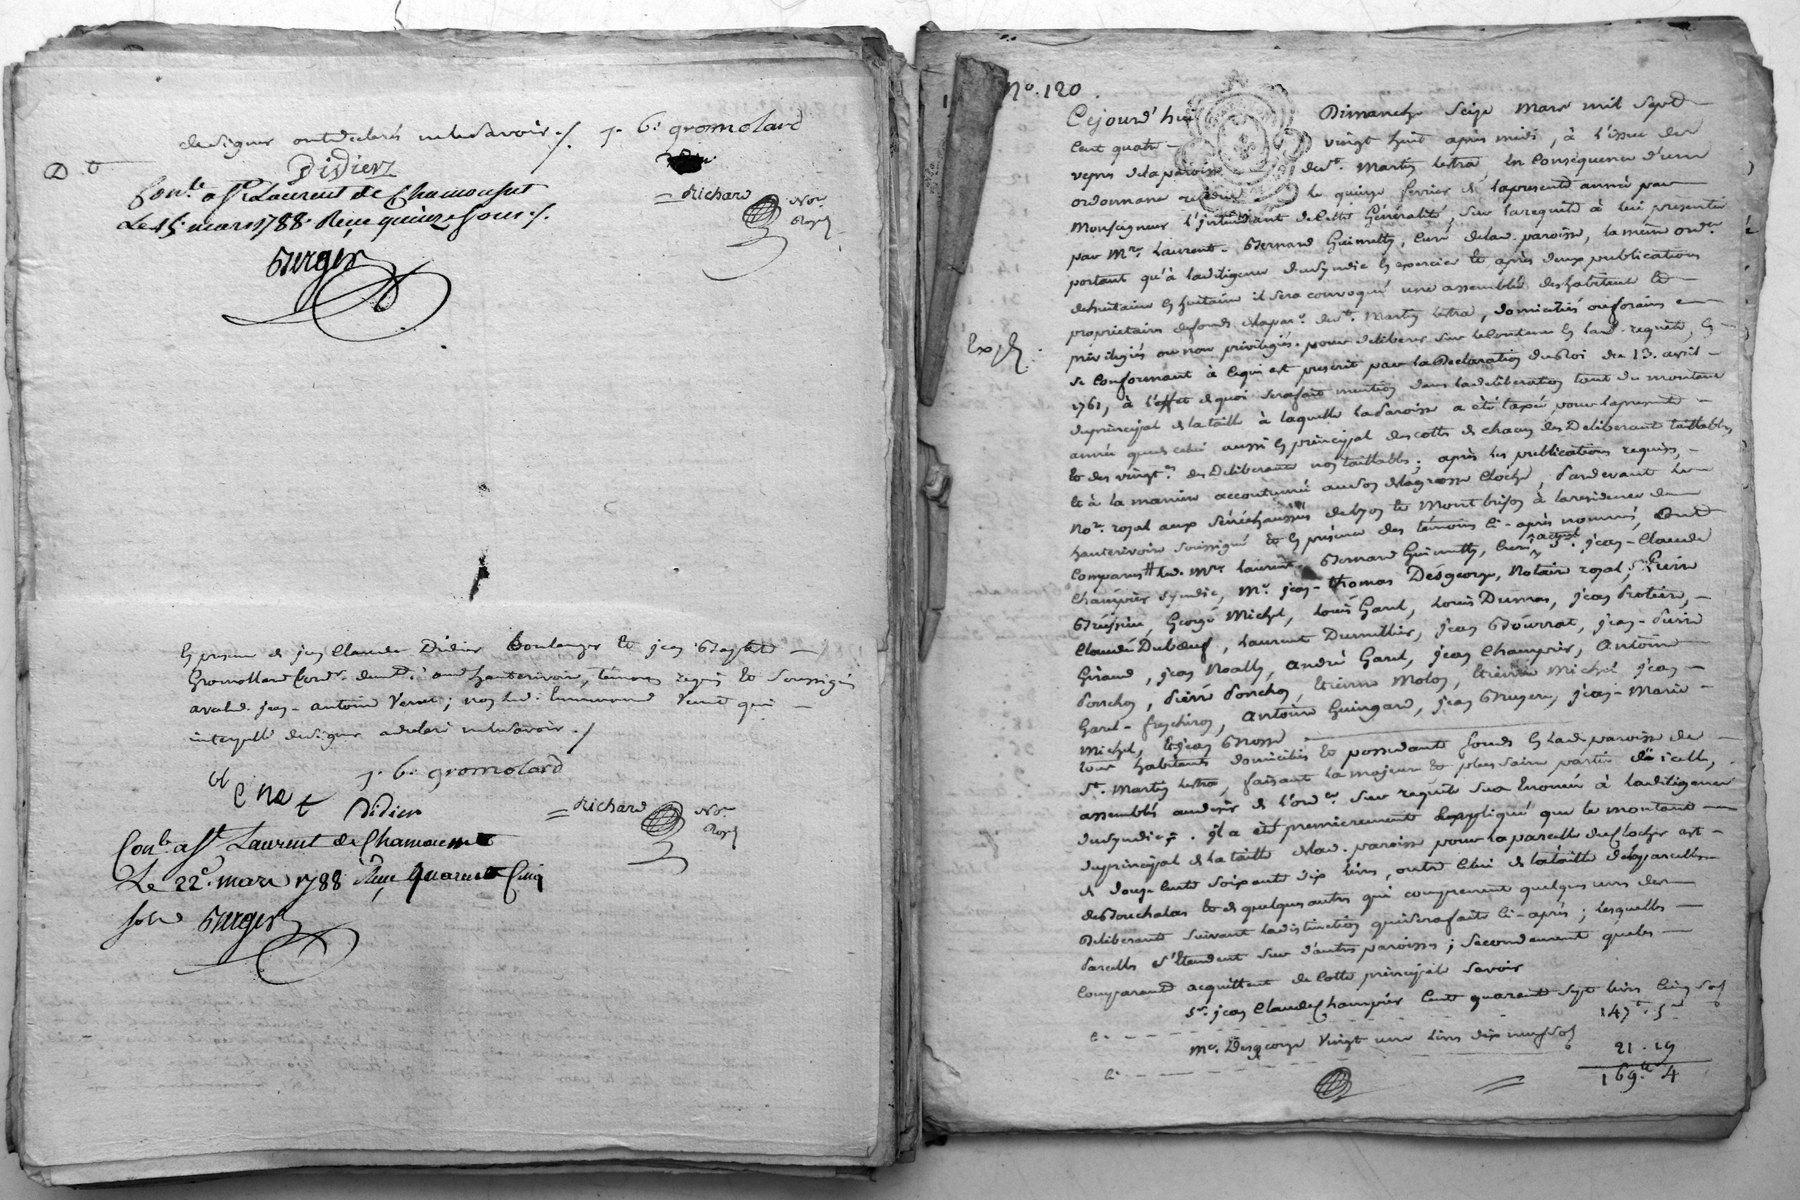 de signer ont declarés ne le savoir ./. J. B. gromolard
D. O
Didier
Con.le a St Laurent de Chamousset
= Richard No.re Roy.l
Le 15 mars 1788 Reçu quinze sous ./.
Berger
En presence de jean Claude Didier Boulanger et jean Baptiste
Gromollard Cord.r demt. au d. hauterivoire, témoins requis et soussignés
avec led. jean-antoine Venet ; non led. qui
interpellé de signer a declaré ne le savoir ./
Venet J. B. gromolard
Didier = Richard No.re Roy.l
Con.le a St Laurent de Chamousset
Le 22e. mars 1788 Reçu quarante Cinq
sols Berger
No. 120
Cejourd'hui Dimanche seize mars mil sept
cent quatre vingt huit après midi, à l'issue des
vepres de la paroisse de St. Martin lestra en conséquence d'une
ordonnance rendue le quinze fevrier de la presente année par
Monseigneur l'intendant de cette Généralité, sur la requête à lui presentée
par Mre. Laurent-Bernard Guimette, curé de lad. paroisse, la même ord.ce
portant qu'à la diligence du syndic en exercice et après deux publications
de huitaine en huitaine il sera convoqué une assemblée des habitants et
proprietaires de fonds de la par.e de St. Martin lestra, domiciliés ou forains
Exp.
privilegiés ou non privilegiés pour deliberer sur le contenu en lad. requête, en
se conformant à ce qui est prescrit par la Declaration du Roi du 13. avril
1761, à l'effet de quoi sera fait mention dans la deliberation tant du montant
du principal de la taille à laquelle la Paroisse a été taxée pour la presente
année que de celui aussi en principal des cottes de chacun des Deliberants taillables
et des vingt.es des Deliberants non taillables ; après les publications requises,
et à la manière accoutumée au son de la grosse cloche, Pardevant le
No.re royal aux Sénéchaussées de Lyon et Montbrison à la residence de
hauterivoire soussigné et en présence des témoins ci-après nommés, Ont
comparus led. Mre Laurent-Bernard Guimette, curé, Sr. jean-Claude
Champier syndic, Me. jean-thomas Desgeorge, Notaire royal, Sr. Pierre
Bruyssin, George Michel, Louis Garel, Louis Dumas, jean Protière,
Claude Duboeuf, Laurent Dumillier, jean Bourrat, jean-Pierre
Giraud, jean Noally, andré Garel, jean Champier, Antoine
Ponchon, Pierre Ponchon, Etienne Molon, Etienne Michel, jean
Garel-freschiron, Antoine Guingard, jean Bruyere, jean-Marie
Michel, et jean Brosse
tous habitants domiciliés et possedants fonds en lad. paroisse de
St. Martin lestra, faisant la majeure et plus saine partie d'icelle,
assemblés au desir de l'ord.ce sur requête sus énoncée à la diligence
du syndic. il a été premierement expliqué que le montant
du principal de la taille de lad. paroisse pour la parcelle du Clocher est
de douze cents soixante dix livres, outre celui de la taille des parcelles
de Bouchalas et de quelques autres qui comprennent quelques uns des
Deliberants suivant la distinction qui sera faite ci-après ; lesquelles
Parcelles s'étendent sur d'autres paroisses ; secondement que les
Comparants acquittent de cotte principale savoir
Sr. jean Claude Champier cent quarante sept livres cinq sols
Ci - - - - - 147 # . 5 s
Me. Desgeorge vingt une livres dix neuf sols
Ci - - - - - 21 . 19
169 # 4